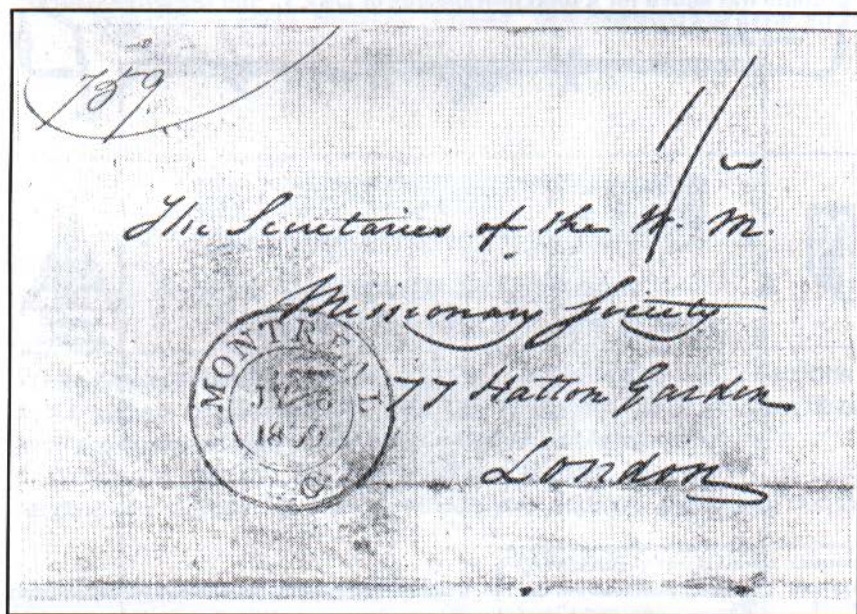 1/
The Secretaries of the W. M.
Missionary Society
77 Hatton Garden
London
MONTREAL